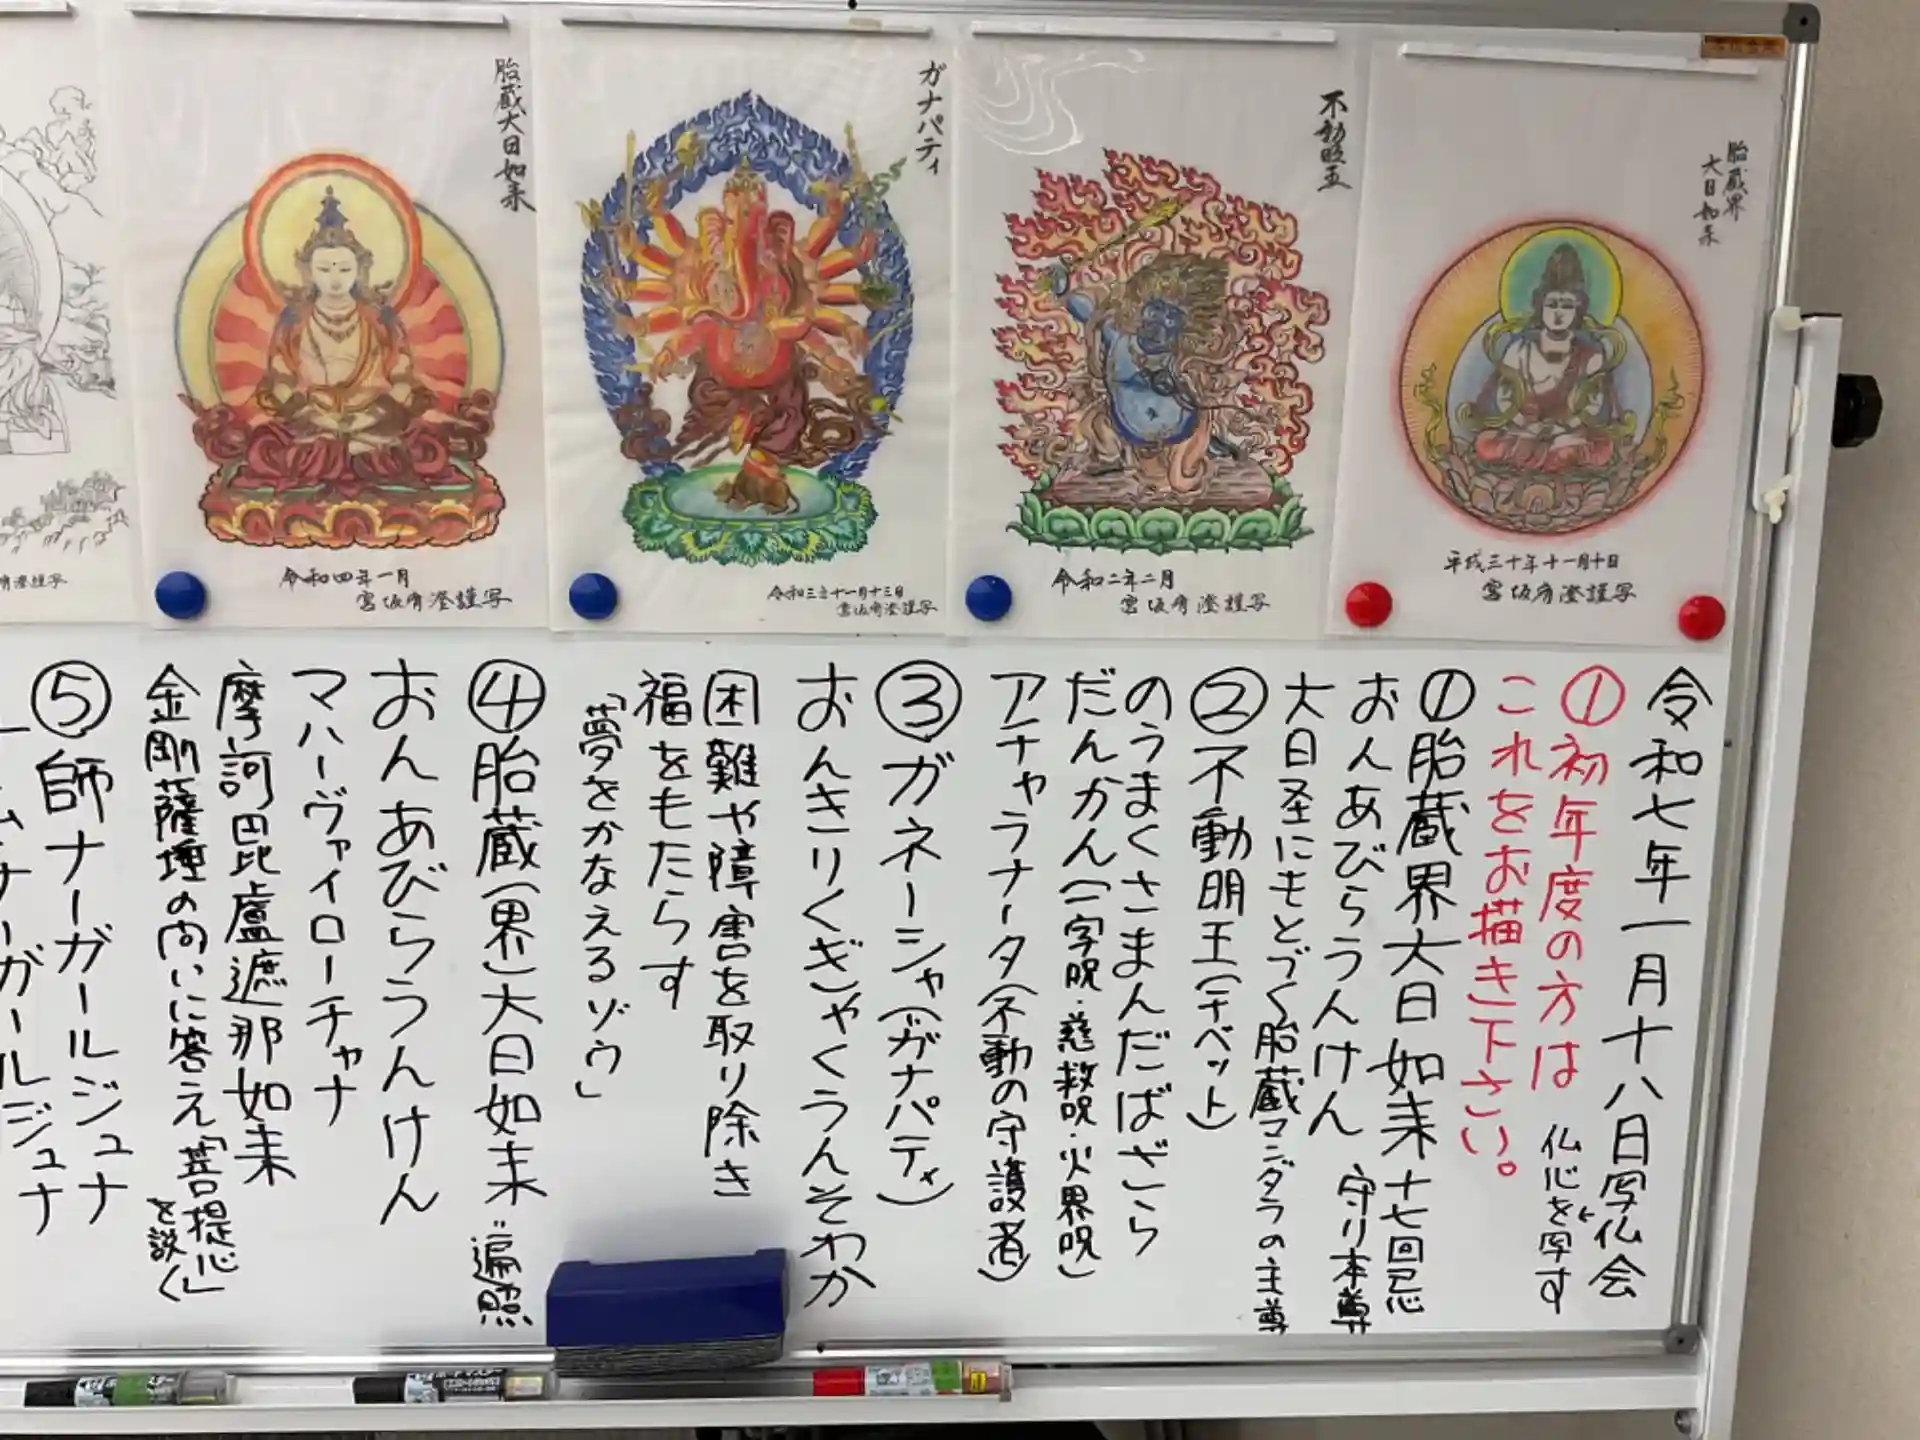 胎蔵界
大日如来
平成三十年十一月十日
宮坂宥澄謹写
不動明王
令和二年二月
宮坂宥澄謹写
ガナパティ
令和三年十一月十三日
宮坂宥澄謹写
胎蔵大日如来
令和四年一月
宮坂宥澄謹写
宥澄謹写
令和七年一月十八日写仏会
①初年度の方は
仏心を写す
これをお描き下さい。
①胎蔵界大日如来 十七回忌
おんあびらうんけん 守り本尊
大日経にもとづく胎蔵マンダラの主尊
②不動明王(チベット)
のうまくさまんだばざら
だんかん(一字呪・慈救呪・火界呪)
アチャラナータ(不動の守護者)
③ガネーシャ(ガナパティ)
おんきりくぎゃくうんそわか
困難や障害を取り除き
福をもたらす
「夢をかなえるゾウ」
④胎蔵(界)大日如来 遍照
おんあびらうんけん
マハーヴァイローチャナ
摩訶毘盧遮那如来
金剛薩埵の問いに答え「菩提心」
を説く
⑤師ナーガールジュナ
ナーガールジュナ